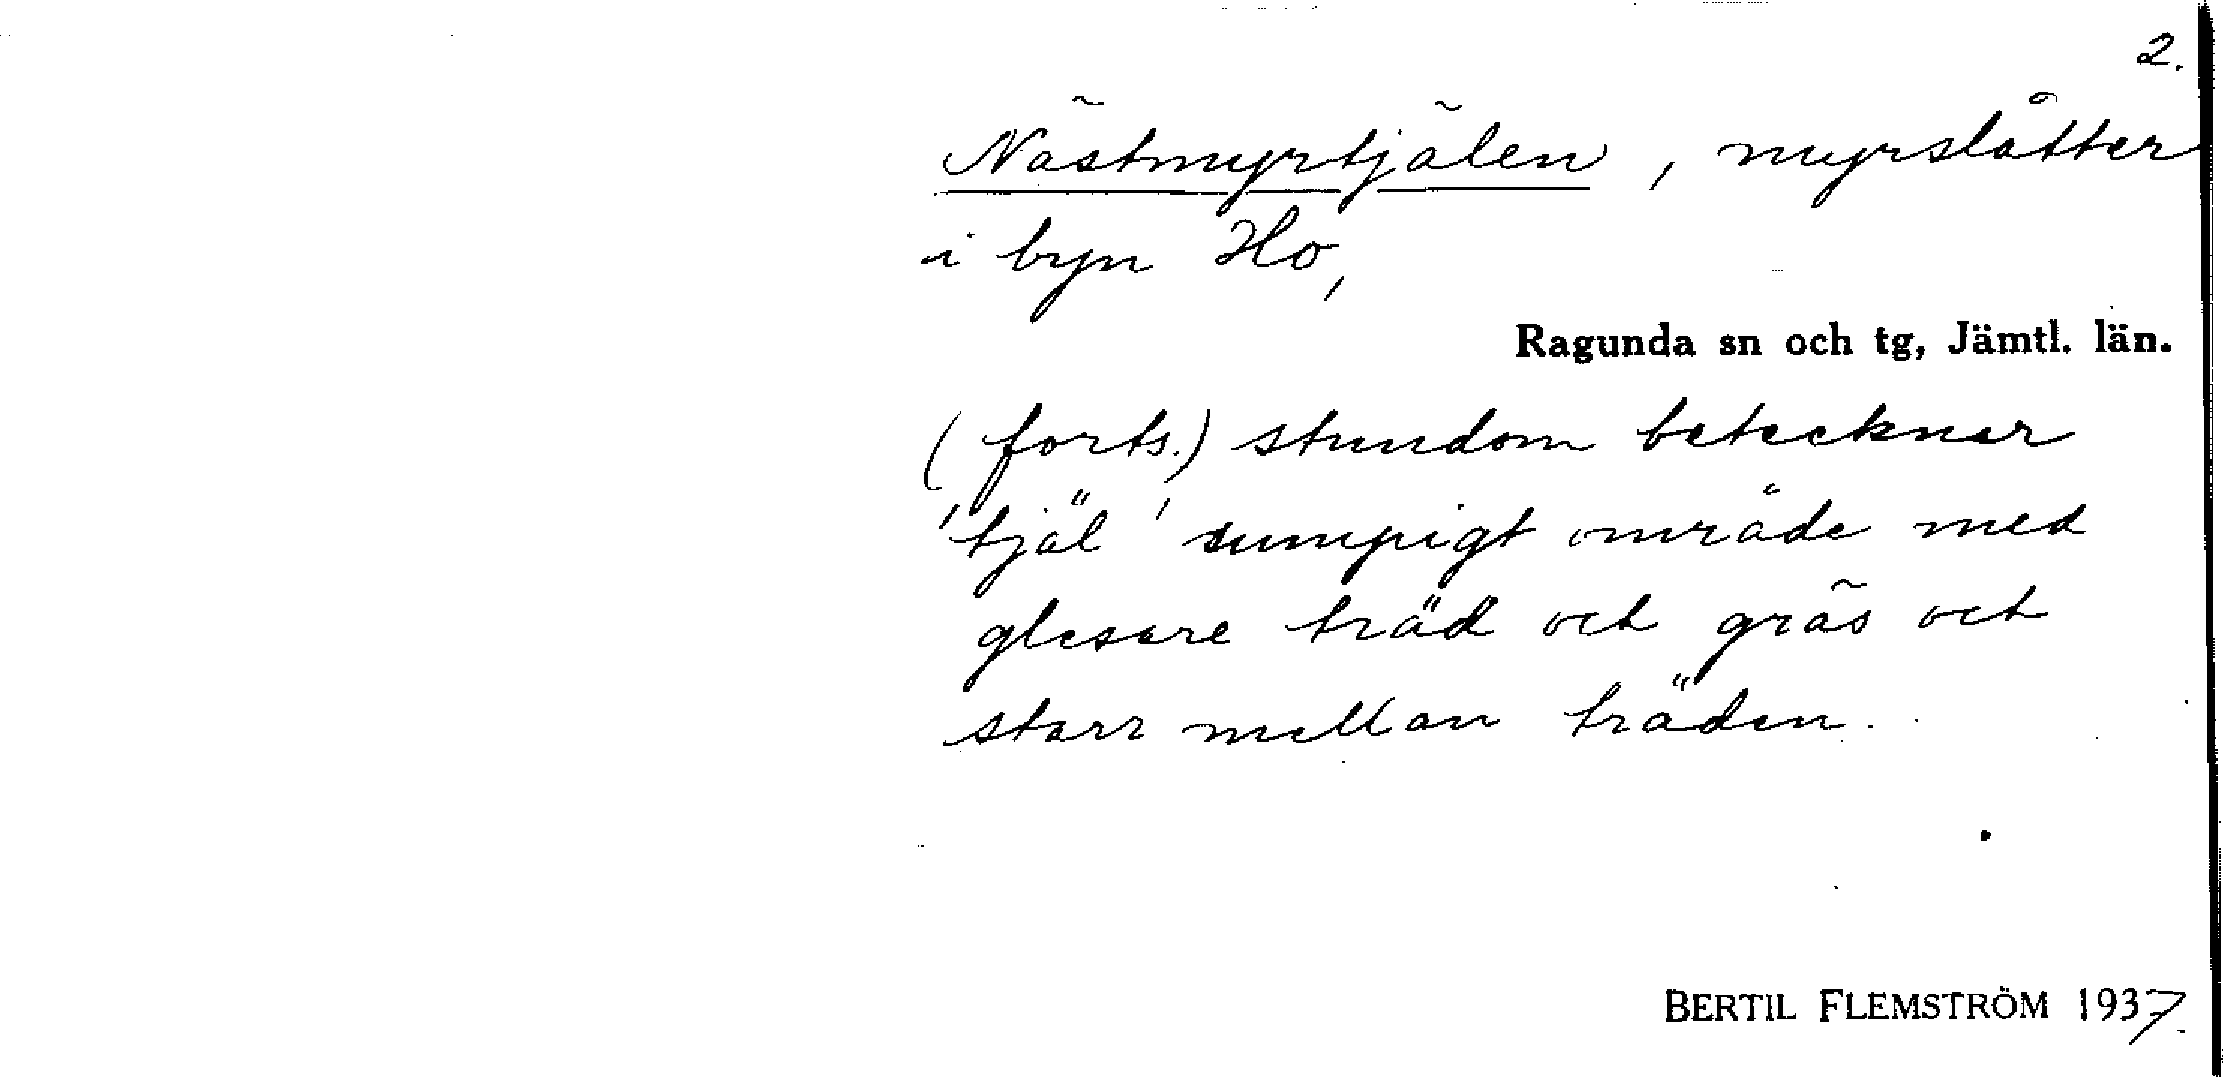 2.
Nästmyrtjälen, myrslåtter
i byn Ho,
Ragunda sn och tg, Jämtl. län.
(forts.) stundom betecknar
'tjäl' sumpigt område med
glesare träd och gräs och
starr mellan träden.
BERTIL FLEMSTRÖM 1937